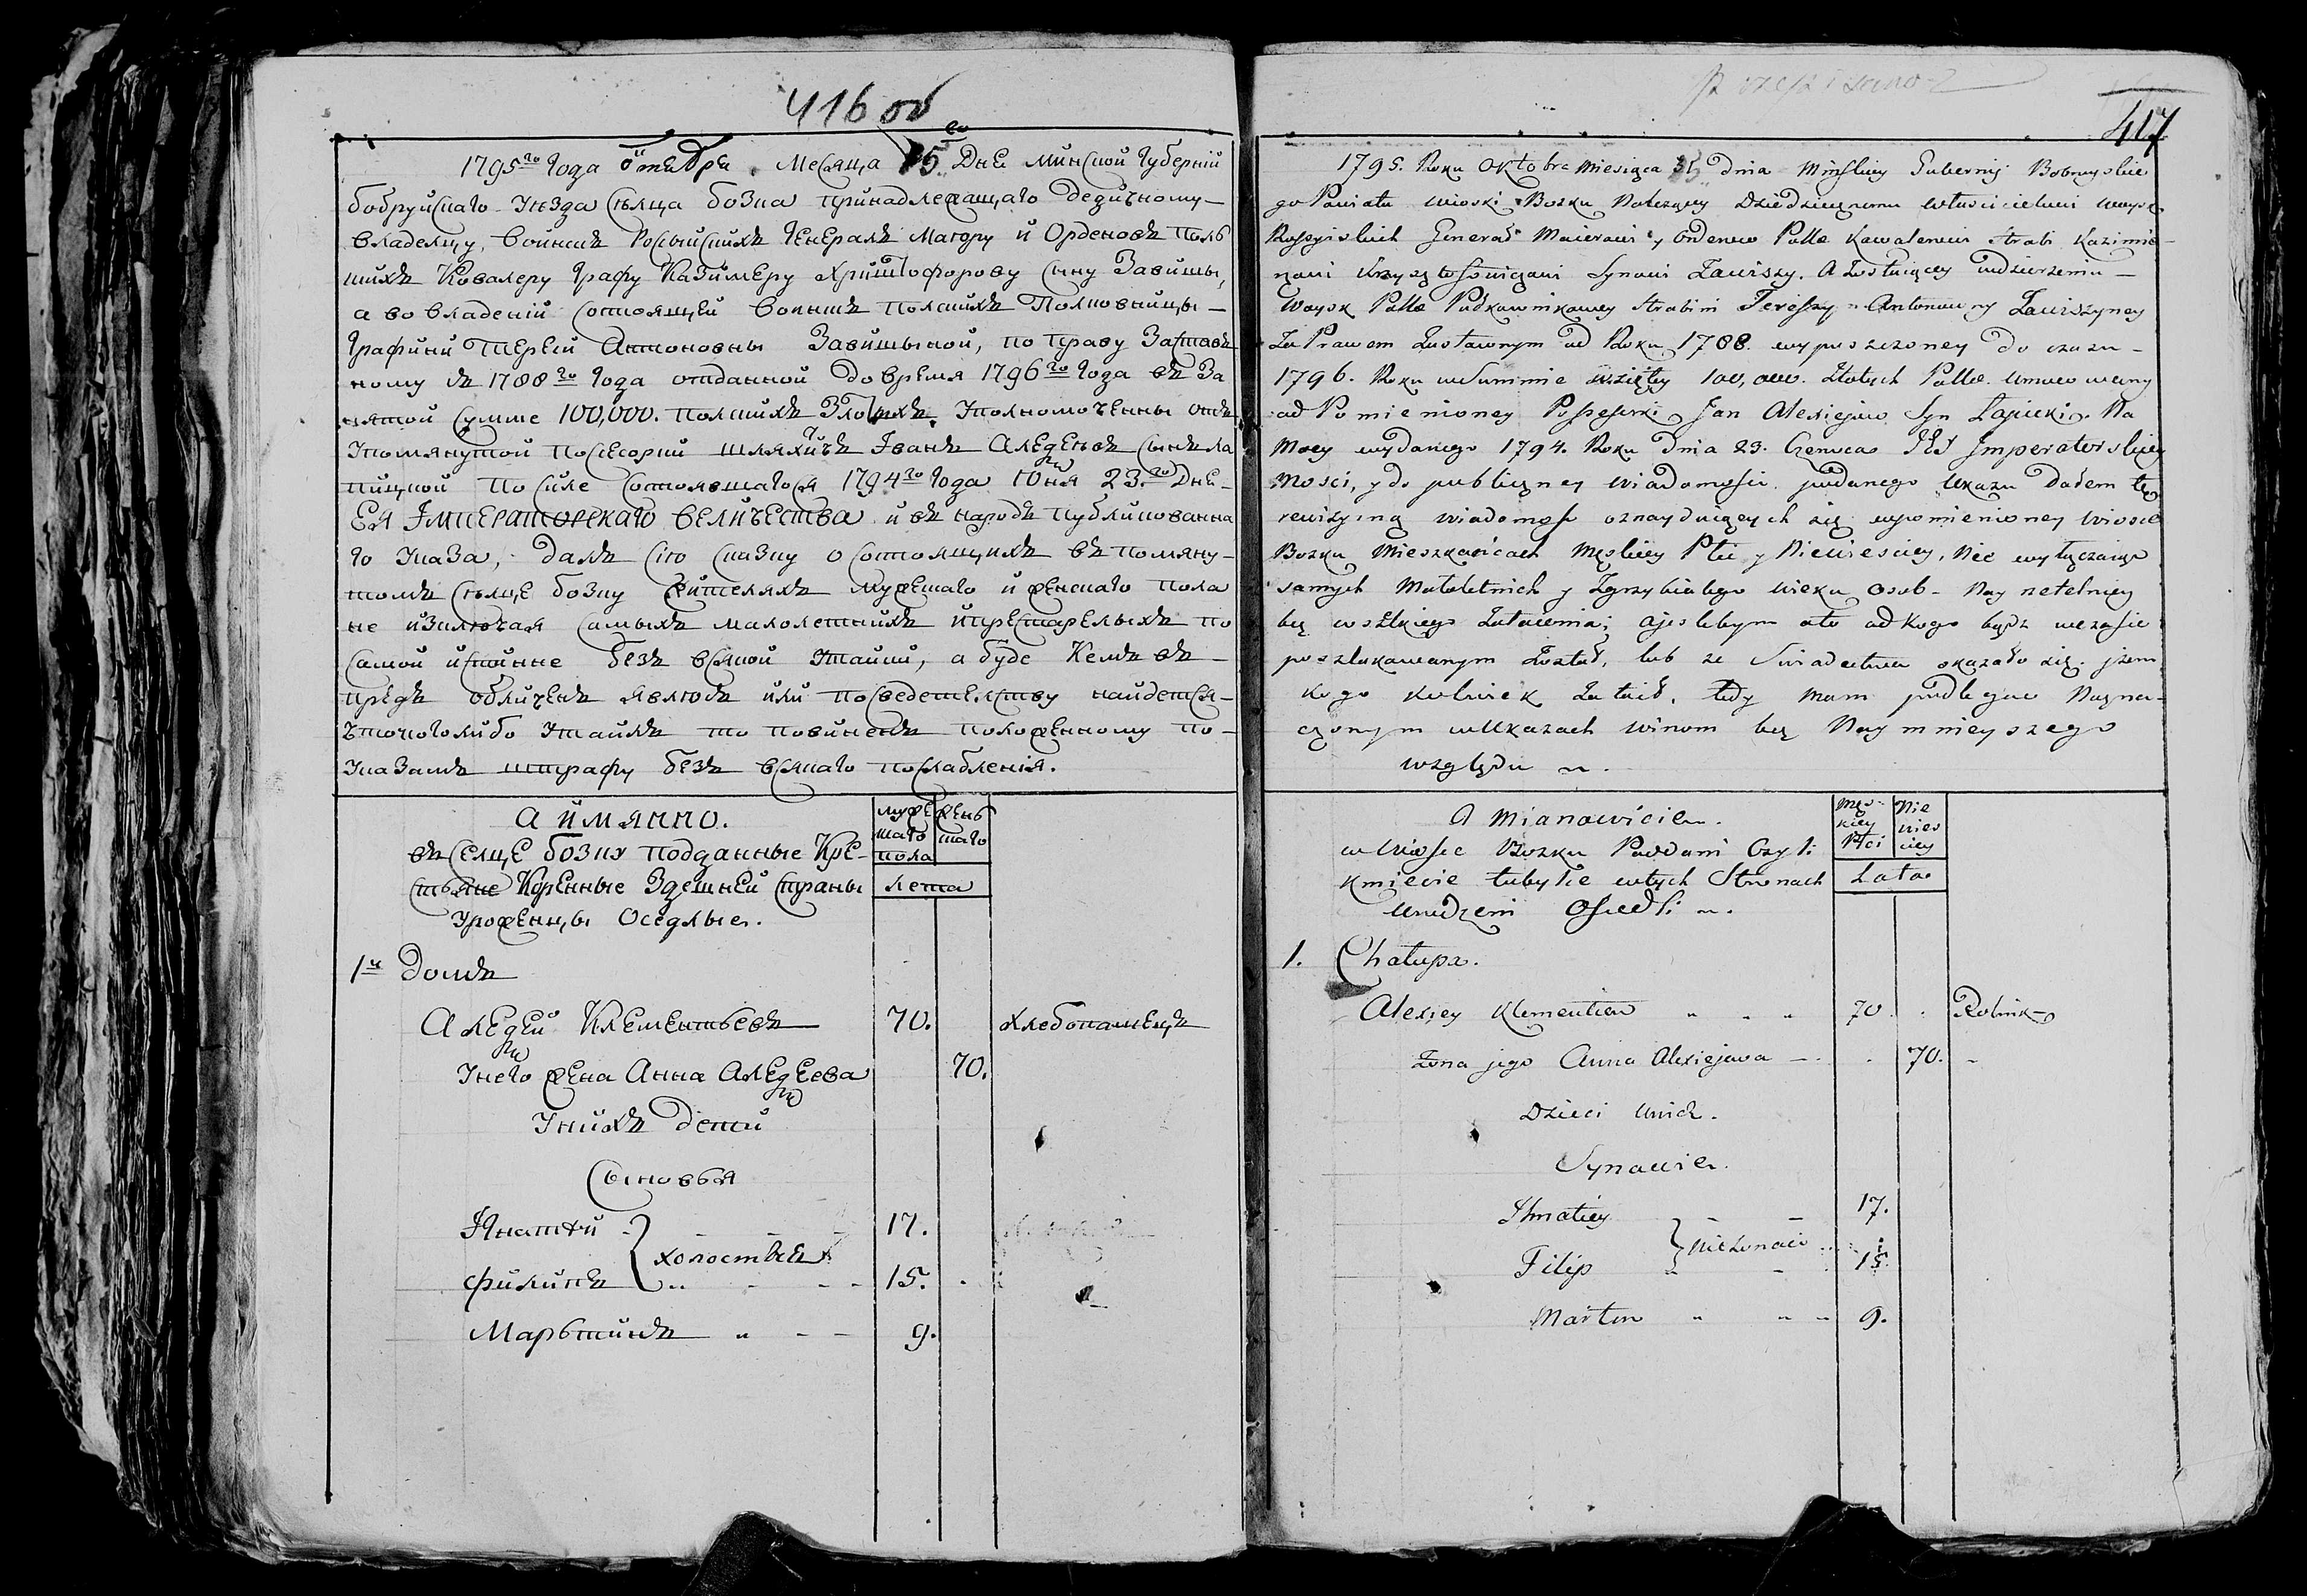 416 об
1795го Года октября Месяца 15го Дне минской Губерній
бобруйскаго Уезда селца бозка принадлежащаго дедичному
владелцу, войскъ Росыйскихъ Генералъ Маіору и Орденовъ полс
кихъ Ковалеру Графу Казимеру Христофорову сыну Завишы,
а во владеній состоящей войскъ полскихъ Полковницы
Графини Терезіи Антоновны Завишыной, по праву Заставъ
ному съ 1788го Года отданной до время 1796го Года въ За
нятой сумме 100,000. полскихъ Злотыхъ. Уполномоченны отъ
Упомянутой посесорки шляхтичъ Іванъ Алексеевъ сынъ ла
пицкой по силе состоявшагося 1794го Года Іюня 23го Дне
Ея Імператорскаго величества и въ народъ публикованна
го Указа, далъ сію сказку о состоящихъ въ помяну
томъ селце бозку жителяхъ мужескаго и женскаго пола
не изключая самыхъ малолетнихъ и престарелыхъ по
самой истинне безъ всякой Утайки, а буде кемъ въ
предь обличенъ явлюсь или по сведетелству найдется
что кого либо Утаилъ то повиненъ положенному по
Указамъ штрафу безъ всякаго послабленія.
а имянно.
въ селце бозку подданные Кре
стьяне коренные Здешней страны
Уроженцы Оседлые.
муже
скаго
пола
женс
каго
лета
1й домъ
Алексей Клементьевъ 70. хлебопашецъ
У него жена Анна Алексеева 70.
У нихъ дети
Сыновья
Игнатей 17.
холостые
Филипъ 15.
Мартинъ 9.
przepisano
417
1795. Roku Oktobra Miesiąca 15 dnia Minskiey Guberny Bobruyskie
go Powiatu wioski Bozku Należący Dziedzicznemu włascicielowi woysk
Rossyiskich Generał Maierowi y Orderow Pollo Kawalerowi Hrabi Kazimie
rzowi Krzysztofowiczowi Synowi Zawiszy. A Zostaiącey w dzierzeniu
Woysk Pollo Pułkownikowey Hrabini Tereszy Antonowny Zawiszyney
Za Prawem Zastawnym od Roku 1788. wypuszczoney do czasu
1796. Roku w Summie wziętey 100,000. Złotych Pollo. Umocowany
od Pomienioney Possessorki Jan Alexiejew Syn Łapicki. Na
Mocy wydanego 1794. Roku Dnia 23. Czerwca Imperatorskiey
Mosci, y do publiczney wiadomosci podanego Ukazu Dałem tę
rewizyiną wiadomosc o znayduiących się w pomienioney wiosce
Bozku Mieszkańcach Męskiey Płci y Niewiesciey, Nie wyłączaiąc
samych Małoletnich y Zgrzybiałego wieku Osob. Nay rzetelniey
bez wszelkiego Zataienia; a jeslibym oto od kogo bądz w czasie
poszlakowanym Został, lub ze Swiadectwa okazało się żem
kogo kolwiek Zataił, tedy mam podlegac Nazna
czonym w Ukazach winom bez Naymnieyszego
względu.
A Mianowicie.
w Wiosce Bozku Poddani Czyli
Kmiecie tubylce w tych Stronach
Urodzeni Osiedli.
Męs
kiey
Płci
Nie
wies
ciey
Lata
1. Chałupa.
Alexiey Klementiew 70. Rolnik
Zona jego Anna Alexiejewa 70.
Dzieci Unich.
Synowie.
Ihnatiey 17.
nieżonaci
Filip 15.
Martin 9.